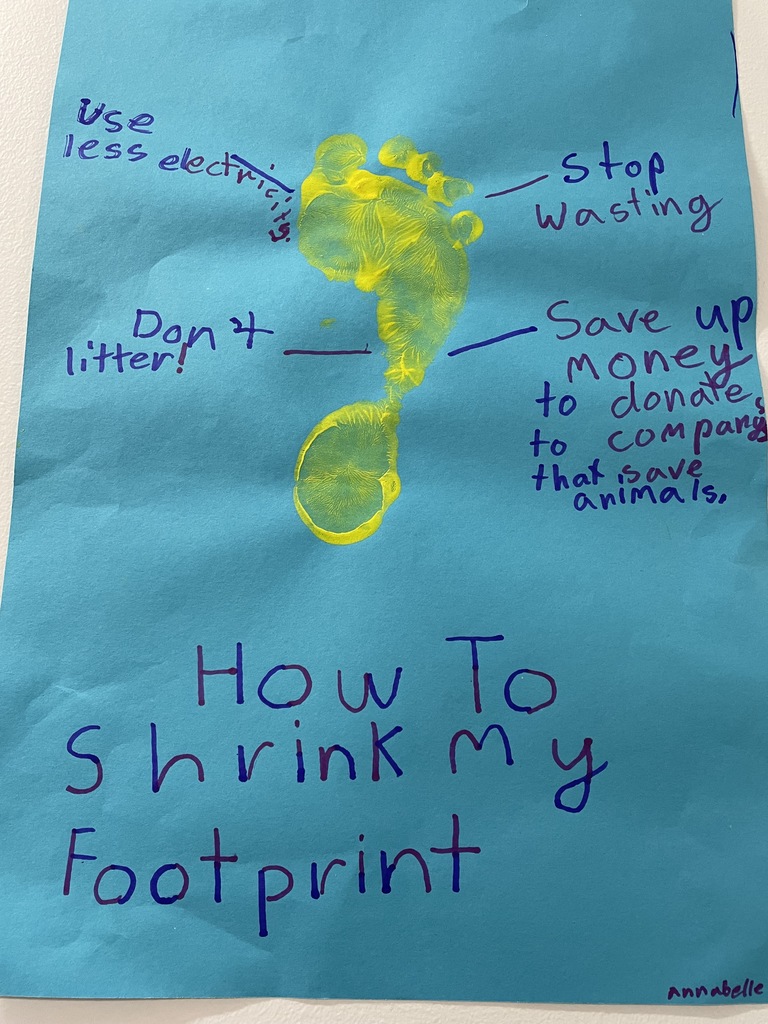 Use
less electricity.
Stop
wasting
Don't
litter!
Save up
money
to donate
to companys
that save
animals.
How To
Shrink My
Footprint
annabelle